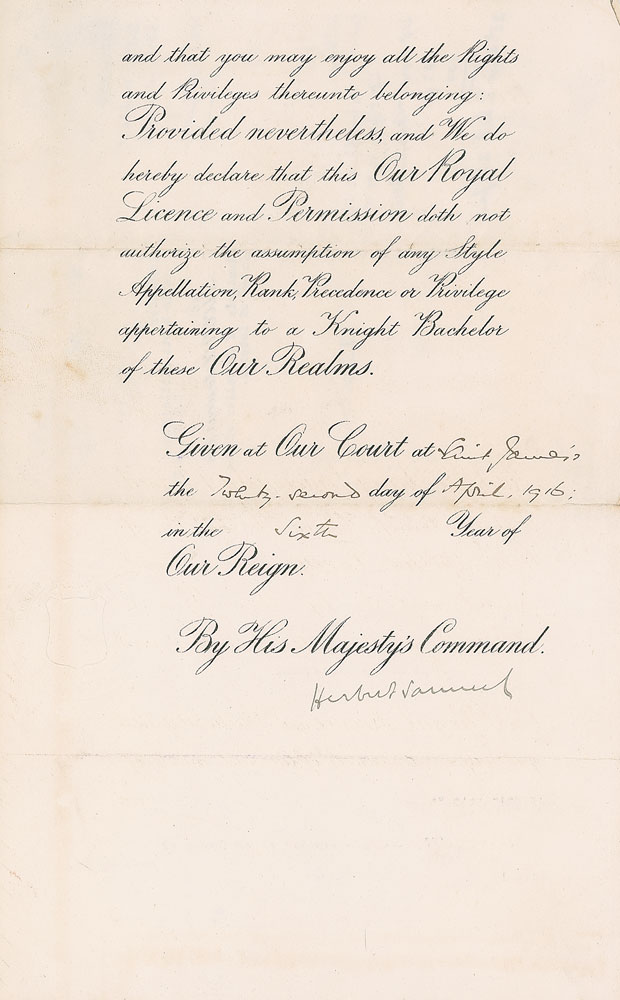 and that you may enjoy all the Rights
and Privileges thereunto belonging:
Provided nevertheless, and We do
hereby declare that this Our Royal
Licence and Permission doth not
authorize the assumption of any Style
Appellation, Rank, Precedence or Privilege
appertaining to a Knight Bachelor
of these Our Realms.
Given at Our Court at Saint James's
the Twenty-second day of April, 1916;
in the Sixth Year of
Our Reign.
By His Majesty's Command.
Herbert Samuel